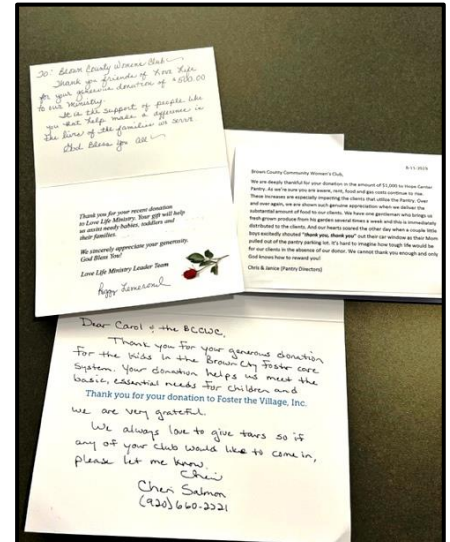 To: Brown County Womens Club
Thank you friends of Love Life
for your generous donation of $500.00
to our ministry.
It is the support of people like
you that help make a difference in
the lives of the families we serve.
God Bless You all
Thank you for your recent donation
to Love Life Ministry. Your gift will help
us assist needy babies, toddlers and
their families.
We sincerely appreciate your generosity.
God Bless You!
Love Life Ministry Leader Team
Peggy
Brown County Community Women's Club,
We are deeply thankful for your donation in the amount of $1,000 to Hope Center
Pantry. As we're sure you are aware, rent, food and gas costs continue to rise.
These increases are especially impacting the clients that utilize the Pantry. Over
and over again, we are shown such genuine appreciation when we deliver the
substantial amount of food to our clients. We have one gentleman who brings us
fresh grown produce from his garden several times a week and this is immediately
distributed to the clients. And our hearts soared the other day when a couple little
boys excitedly shouted "thank you, thank you" out their car window as their Mom
pulled out of the pantry parking lot. It's hard to imagine how tough life would be
for our clients in the absence of our donor. We cannot thank you enough and only
God knows how to reward you!
Chris & Janice (Pantry Directors)
Dear Carol & the BCCWC,
Thank you for your generous donation
for the kids in the Brown Cty foster care
system. Your donation helps us meet the
basic, essential needs for children and
Thank you for your donation to Foster the Village, Inc.
we are very grateful.
We always love to give tours so if
any of your club would like to come in,
please let me know.
Cheri
Cheri Salmon
(920) 660-2221